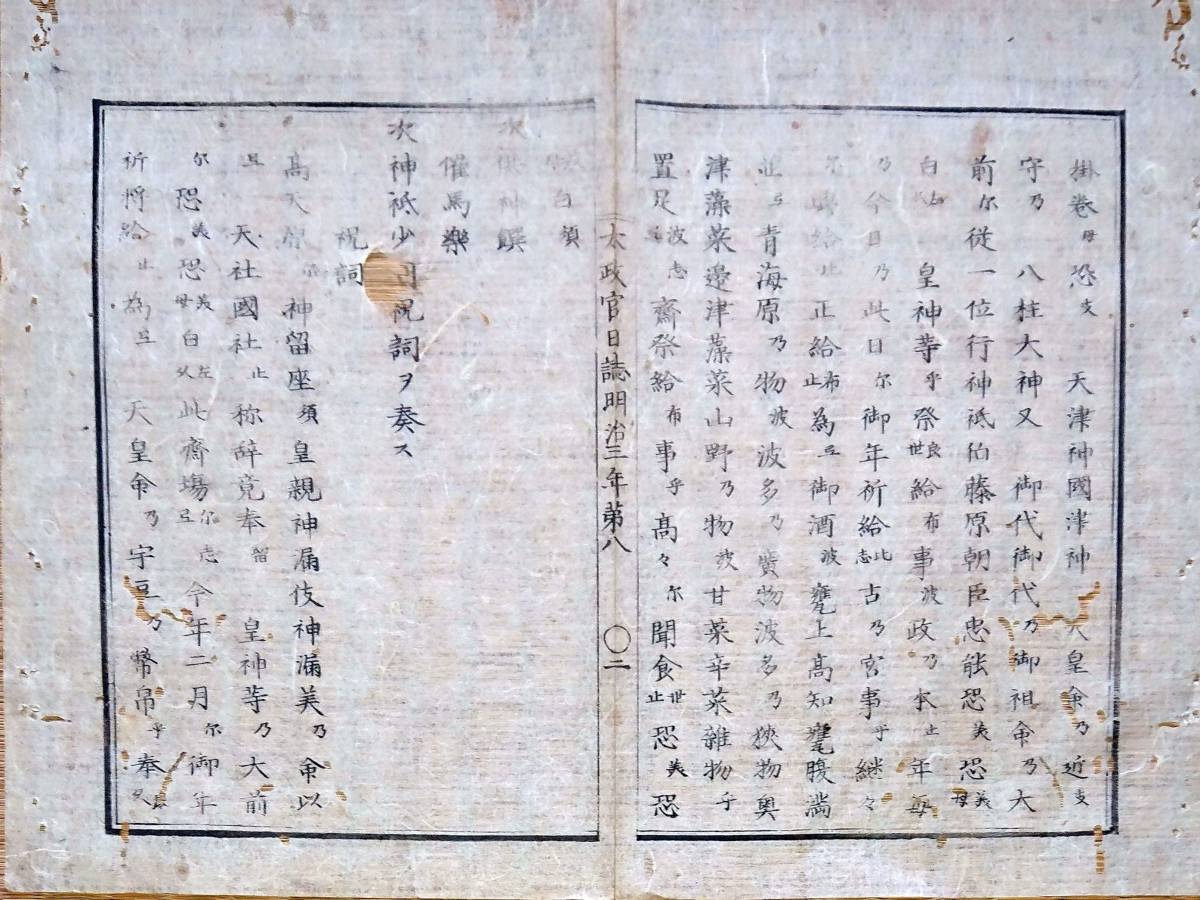 掛卷母恐支　天津神國津神　天皇命乃近支
守乃　八柱大神又　御代御代乃御祖命乃大
前尓従一位行神祇伯藤原朝臣忠能恐美恐美母
白久　皇神等乎祭良世給布事波政乃本止年毎
乃今日乃此日尓御年祈給比志古乃宮事乎継々
尓給止正給布止為弖御酒波甕上高知甕腹満
並弖青海原乃物波波多乃廣物波多乃狭物奥
津藻菜邊津藻菜山野乃物波甘菜辛菜雜物乎
置足波志齋祭給布事乎高々尓聞食世止恐美恐
白須
太政官日誌明治三年第八　〇二
次供神饌
催馬樂
次神祇少祝詞ヲ奏ス
祝詞
高天原尓神留座須皇親神漏伎神漏美乃命以
弖　天社國社止称辞竟奉留　皇神等乃大前
尓恐美恐美母白左久此齋場尓志弖今年二月尓御年
祈將給止為弖　天皇命乃宇豆乃幣帛乎奉良久